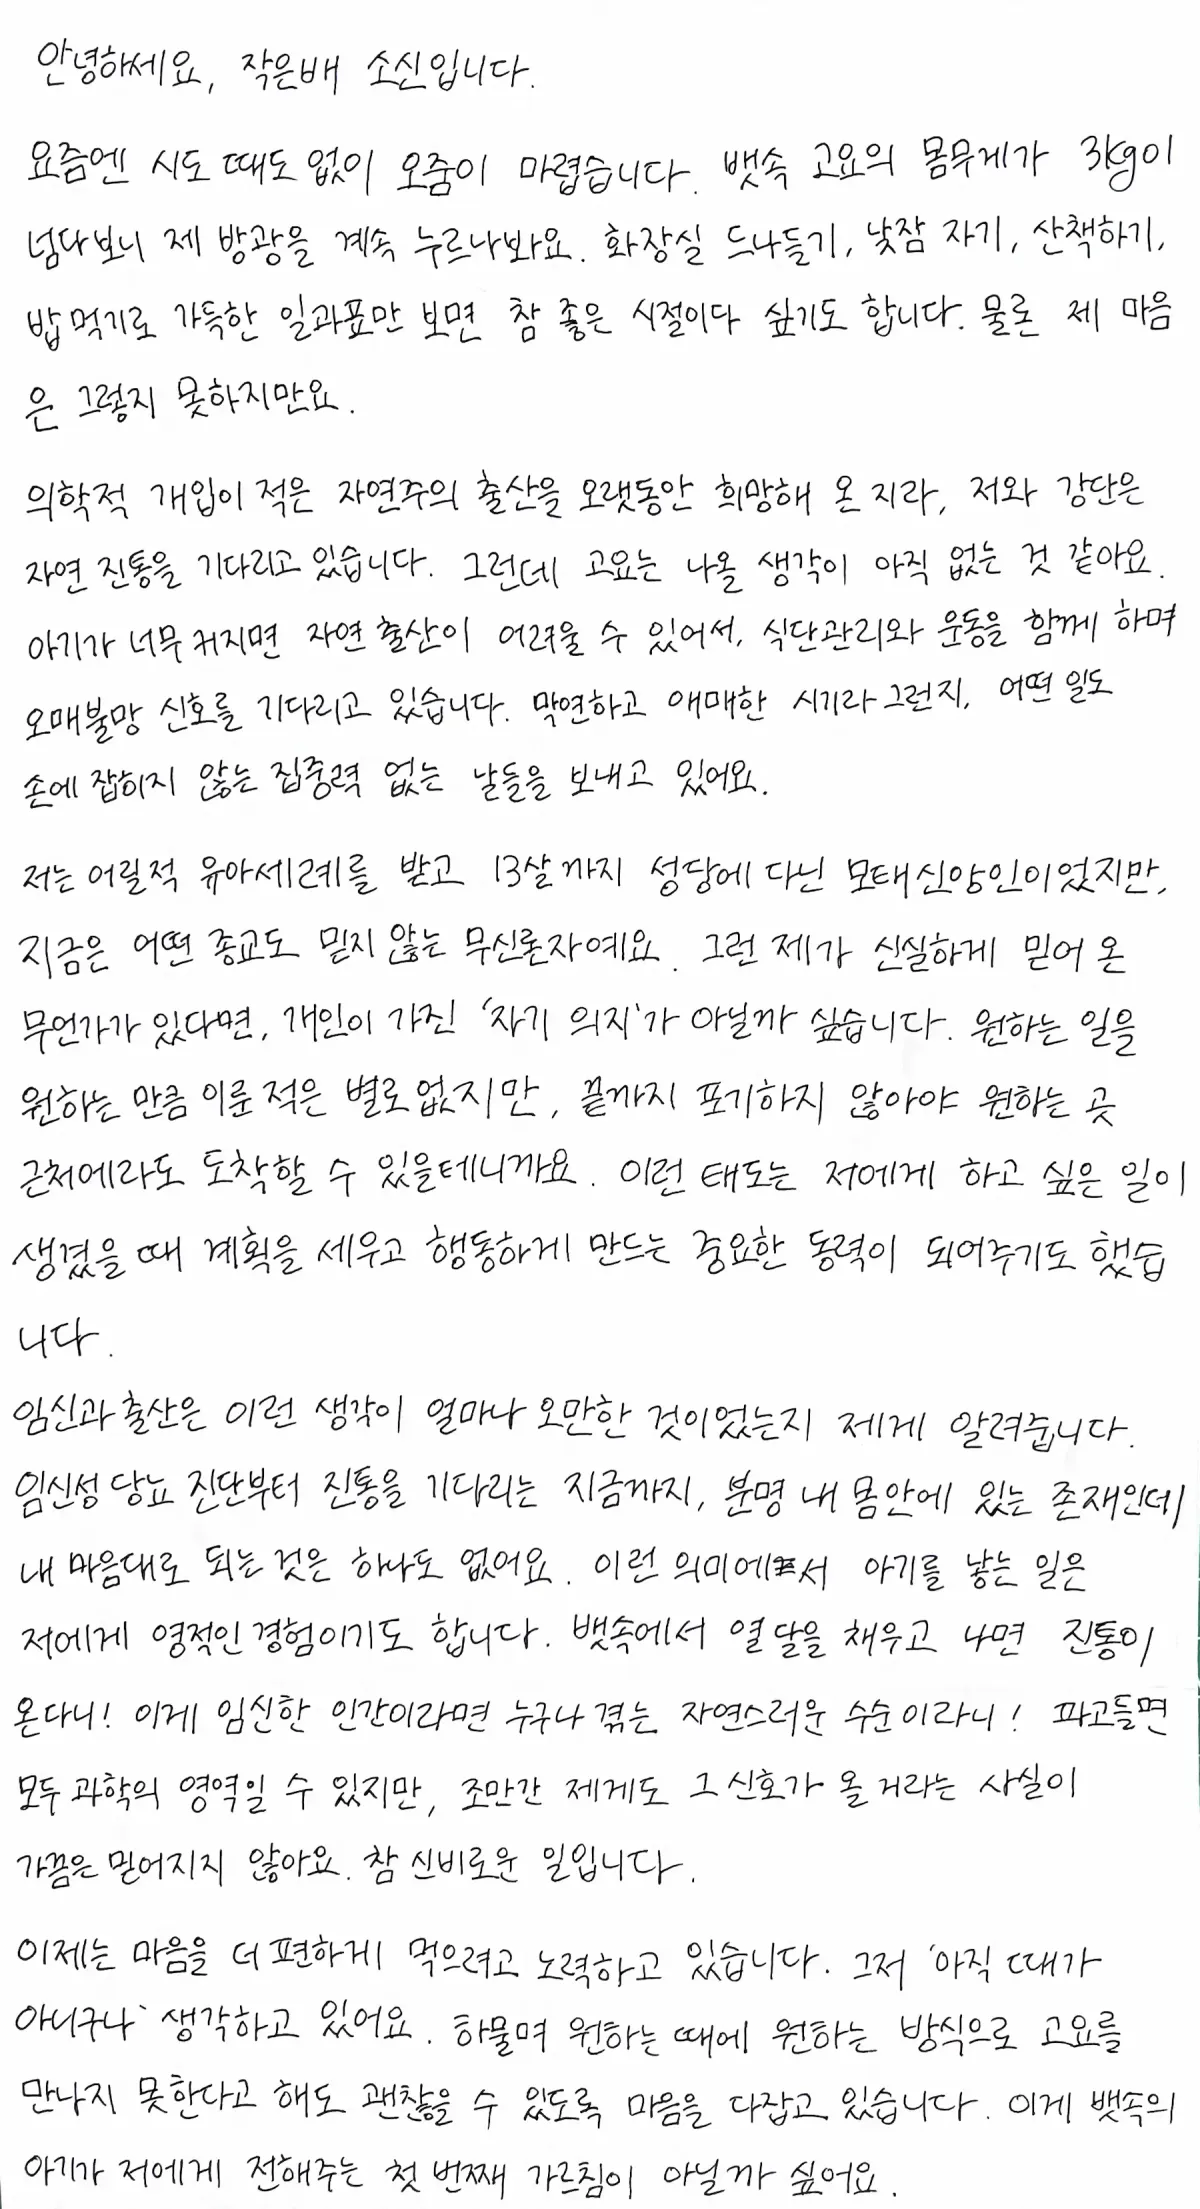 안녕하세요, 작은배 소신입니다.
요즘엔 시도 때도 없이 오줌이 마렵습니다. 뱃속 고요의 몸무게가 3kg이
넘다보니 제 방광을 계속 누르나봐요. 화장실 드나들기, 낮잠 자기, 산책하기,
밥 먹기로 가득한 일과표만 보면 참 좋은 시절이다 싶기도 합니다. 물론 제 마음
은 그렇지 못하지만요.
의학적 개입이 적은 자연주의 출산을 오랫동안 희망해 온 지라, 저와 강단은
자연 진통을 기다리고 있습니다. 그런데 고요는 나올 생각이 아직 없는 것 같아요.
아기가 너무 커지면 자연 출산이 어려울 수 있어서, 식단관리와 운동을 함께 하며
오매불망 신호를 기다리고 있습니다. 막연하고 애매한 시기라 그런지, 어떤 일도
손에 잡히지 않는 집중력 없는 날들을 보내고 있어요.
저는 어릴적 유아세례를 받고 13살까지 성당에 다닌 모태신앙인이었지만,
지금은 어떤 종교도 믿지 않는 무신론자예요. 그런 제가 신실하게 믿어 온
무언가가 있다면, 개인이 가진 '자기 의지'가 아닐까 싶습니다. 원하는 일을
원하는 만큼 이룬 적은 별로 없지만, 끝까지 포기하지 않아야 원하는 곳
근처에라도 도착할 수 있을테니까요. 이런 태도는 저에게 하고 싶은 일이
생겼을 때 계획을 세우고 행동하게 만드는 중요한 동력이 되어주기도 했습
니다.
임신과 출산은 이런 생각이 얼마나 오만한 것이었는지 제게 알려줍니다.
임신성 당뇨 진단부터 진통을 기다리는 지금까지, 분명 내 몸 안에 있는 존재인데
내 마음대로 되는 것은 하나도 없어요. 이런 의미에서 아기를 낳는 일은
저에게 영적인 경험이기도 합니다. 뱃속에서 열 달을 채우고 나면 진통이
온다니! 이게 임신한 인간이라면 누구나 겪는 자연스러운 수순이라니! 파고들면
모두 과학의 영역일 수 있지만, 조만간 제게도 그 신호가 올 거라는 사실이
가끔은 믿어지지 않아요. 참 신비로운 일입니다.
이제는 마음을 더 편하게 먹으려고 노력하고 있습니다. 그저 '아직 때가
아니구나' 생각하고 있어요. 하물며 원하는 때에 원하는 방식으로 고요를
만나지 못한다고 해도 괜찮을 수 있도록 마음을 다잡고 있습니다. 이게 뱃속의
아기가 저에게 전해주는 첫 번째 가르침이 아닐까 싶어요.